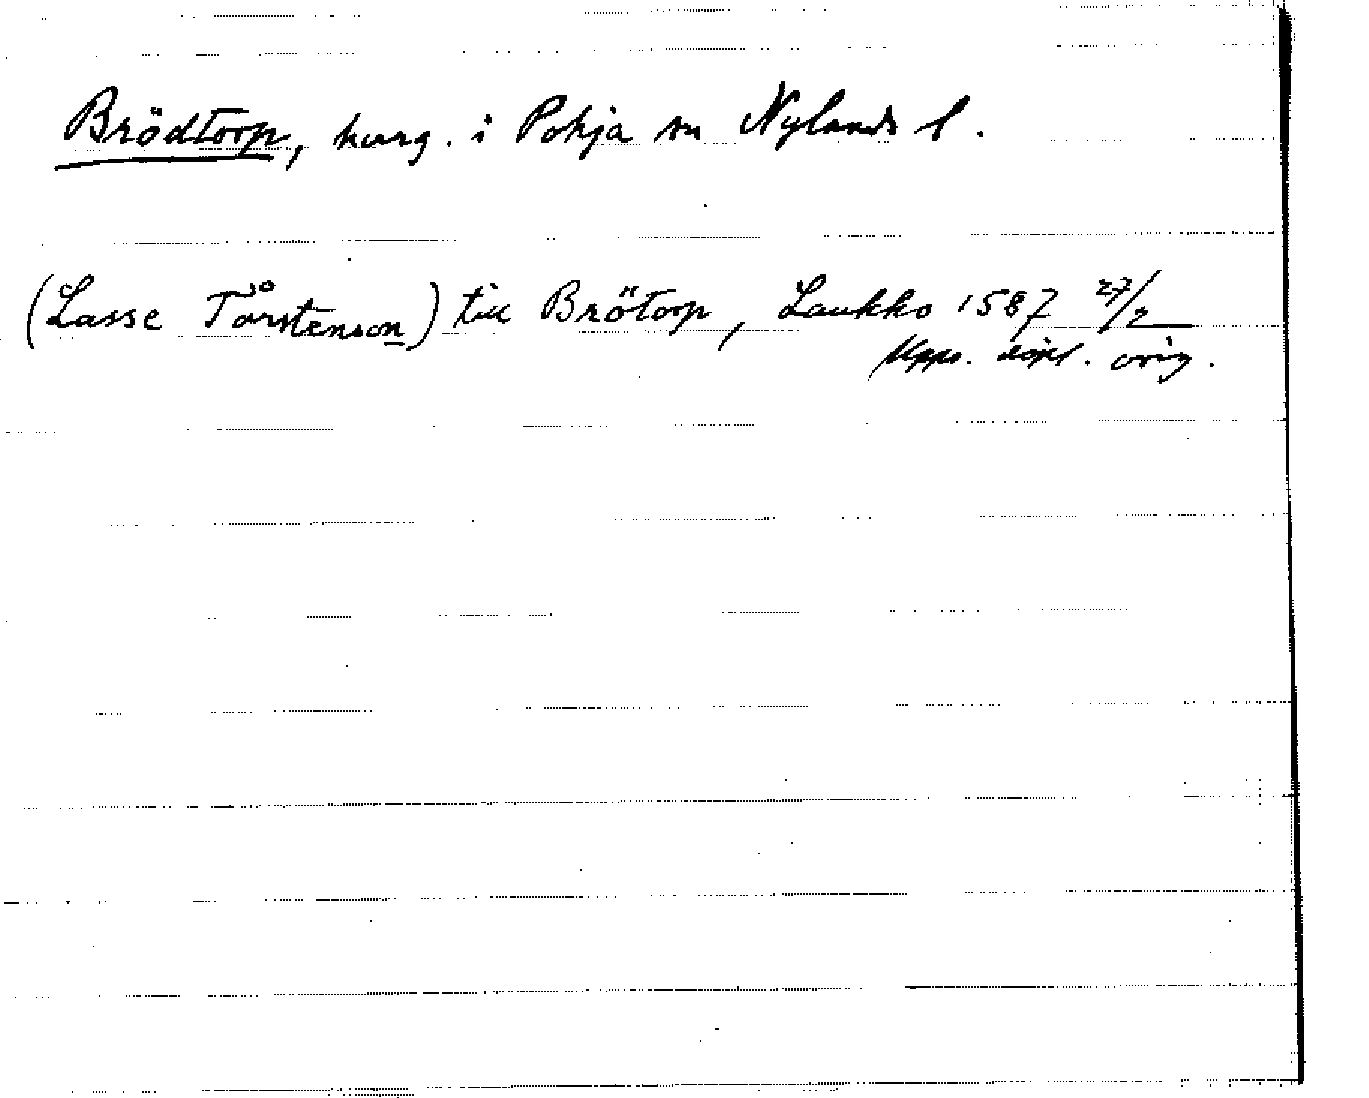 Brödtorp, herrg. i Pohja sn Nylands l.
(Lasse Tårstenson) till Brötorp, Laukko 1587 27/2
Upps. dipl. orig.